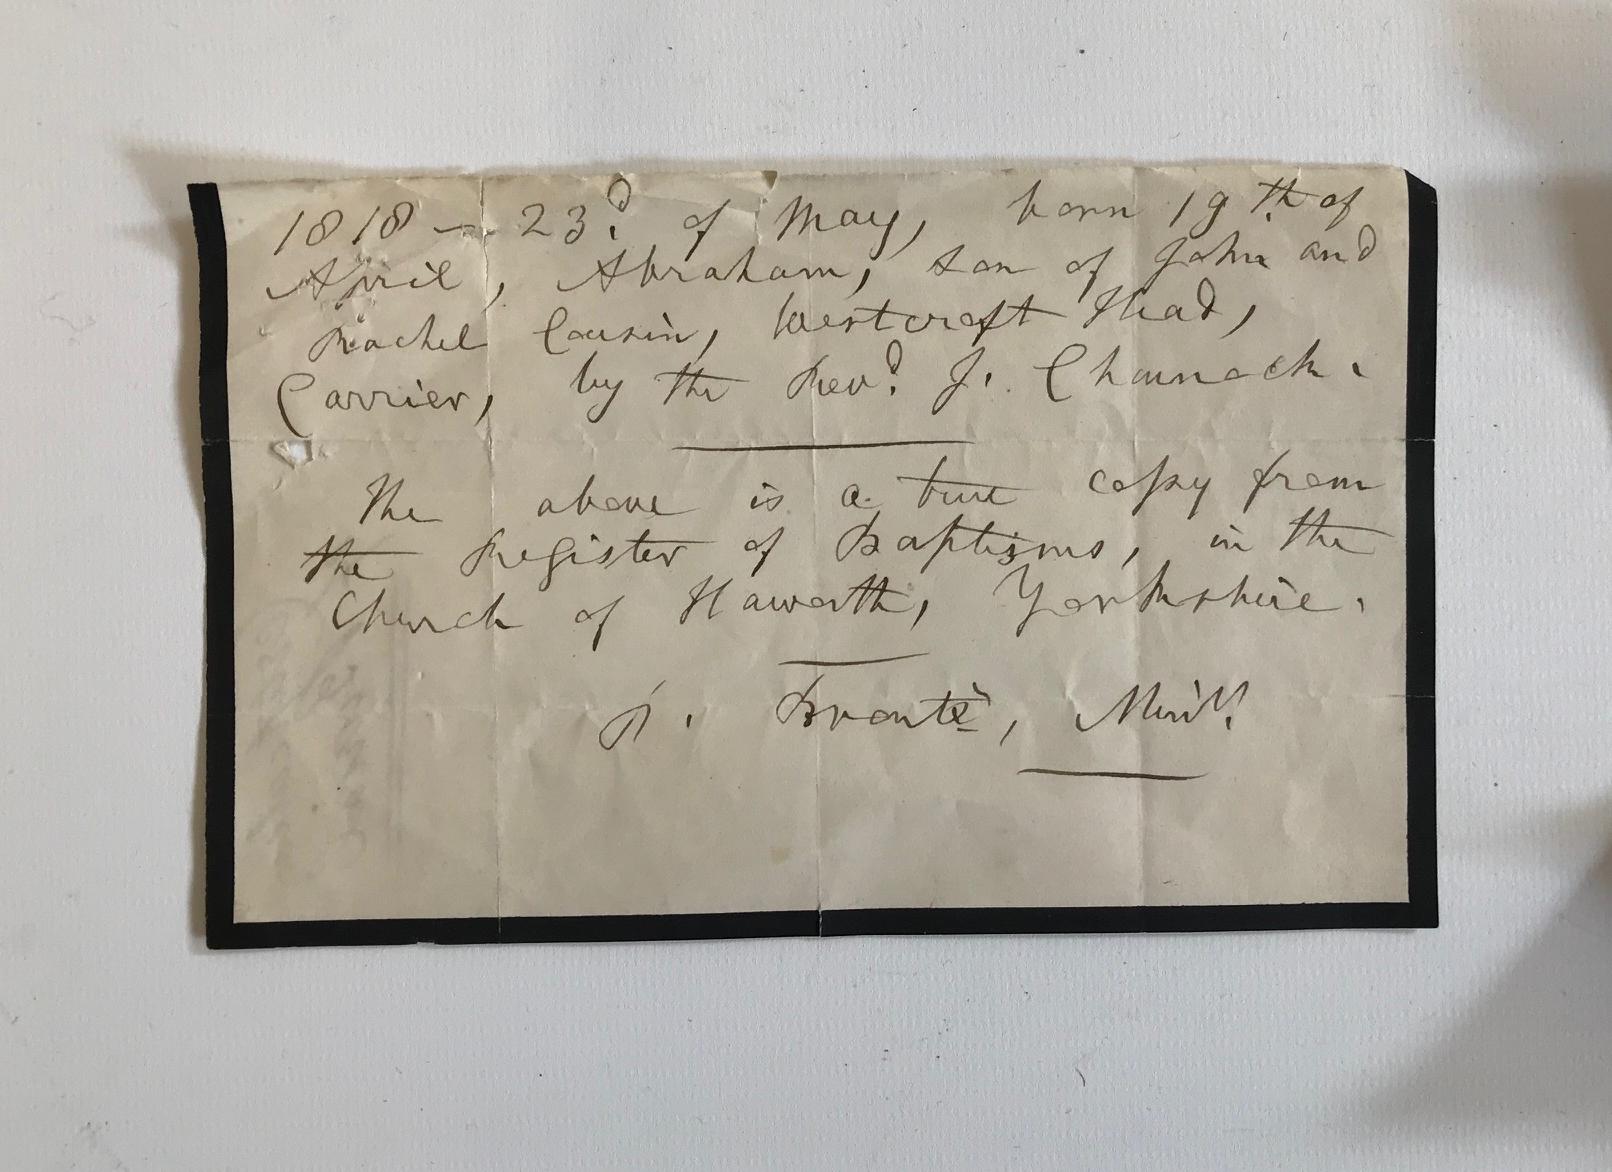 1818 — 23.d of May, born 19th. of
April, Abraham, son of John and
Rachel Cousin, Westcroft Head,
Carrier, by the Revd. J. Charnock.
The above is a true copy from
the Register of Baptisms, in the
Church of Haworth, Yorkshire.
P. Brontë, Minr.